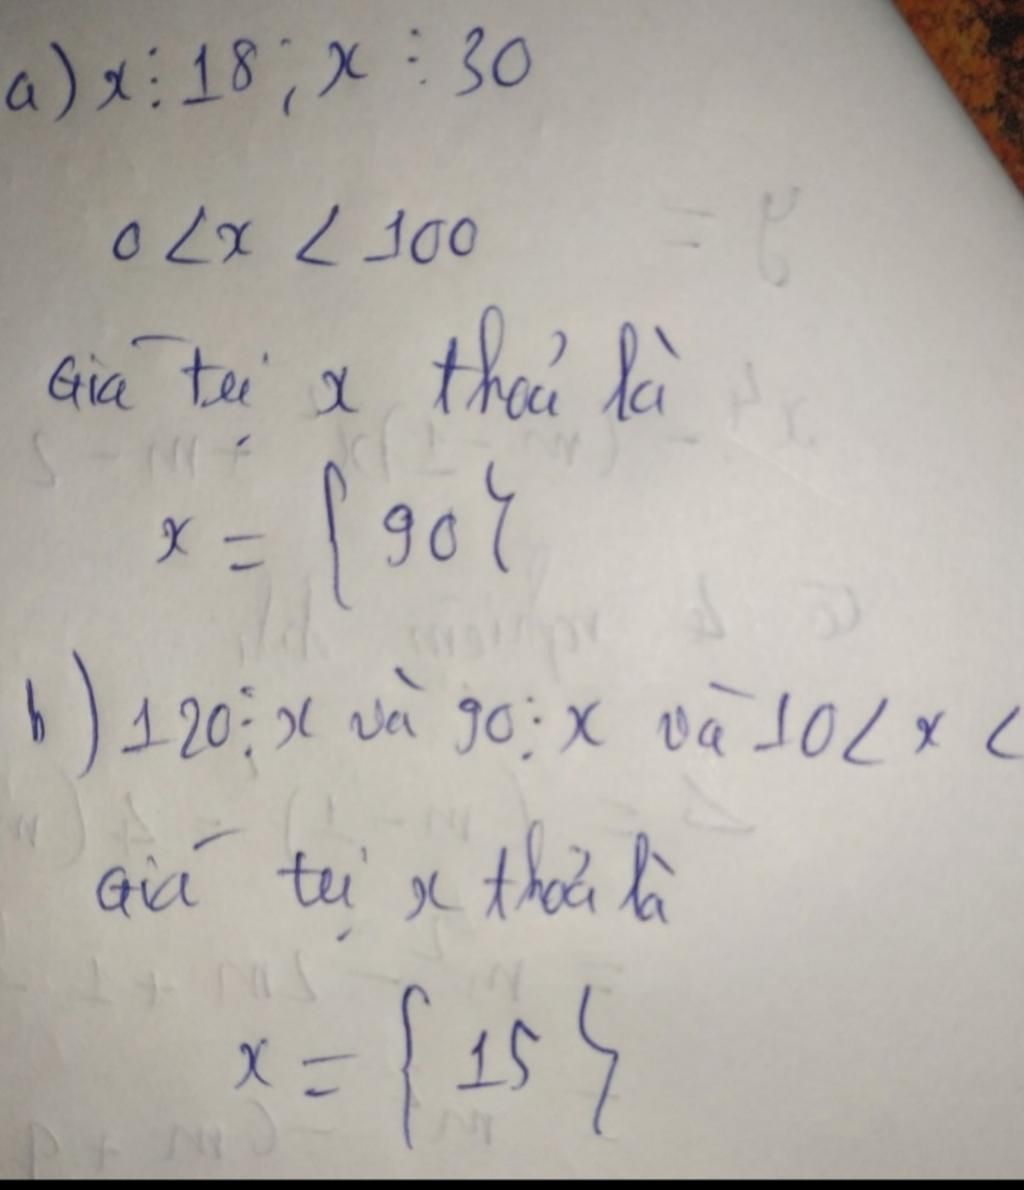 a) x⋮18; x⋮30
0 < x < 100
Giá trị x thoả là
x = {90}
b) 120⋮x và 90⋮x và 10 < x <
Giá trị x thoả là
x = {15}